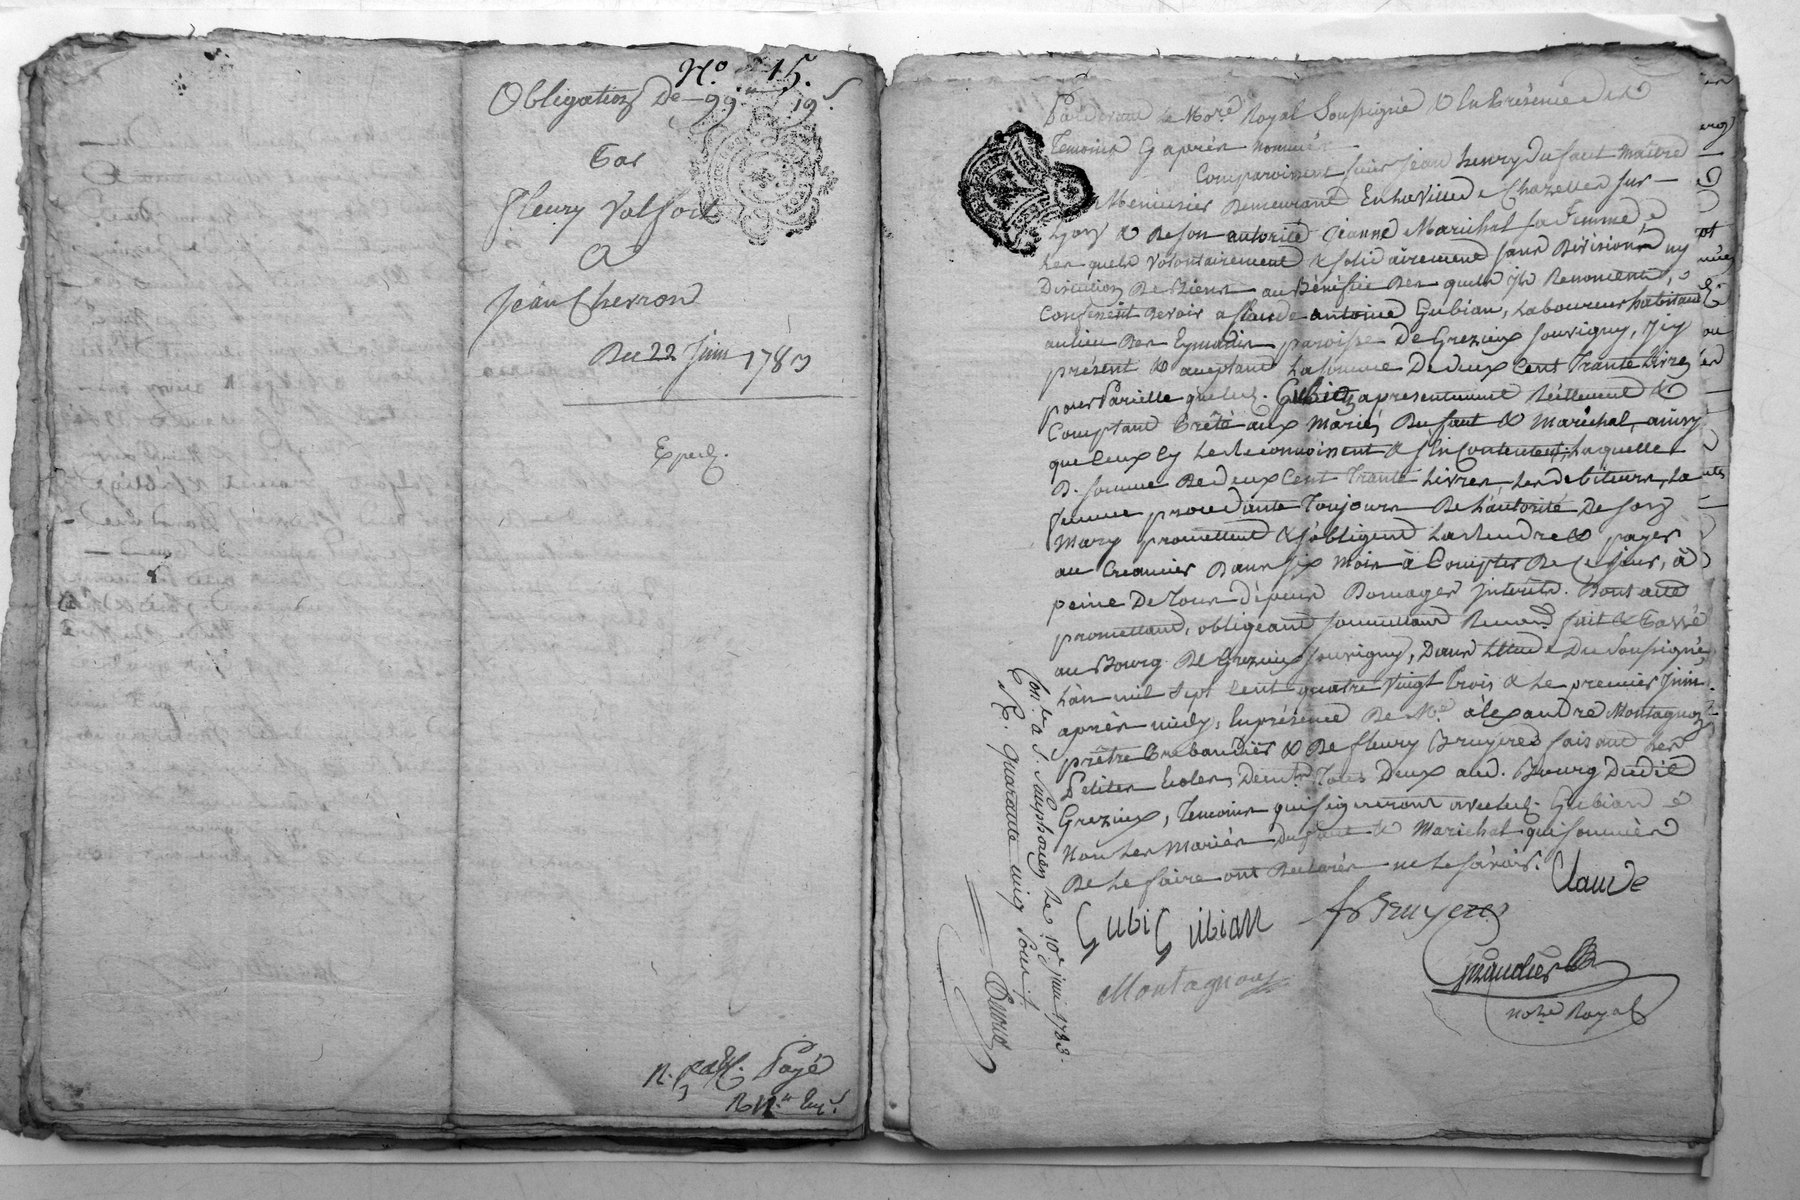 N.º 15.
Obligation De 99.ᵗᵗ 19.ˢ
Par
Fleury Valfort
A
Jean Cherron
Du 22 Juin 1783
Exped.
Payé
Pardevant Le No.re Royal Soussigné & En Présence des
Temoins Cy aprèn nommés
Comparoissent sieur Jean henry Dufaut Maître
Menuisier Demeurant En La Ville de Chazelles sur
Lyon & De son autorité Jeanne Marichal sa Femme
Les quels Volontairement & solidairement sans Division ny
Discution De Biens au Bénéfice Des quels ils Renoncent,
Confessent Devoir a Claude antoine Gubian, Laboureur habitant
au lieu Des Eymarin paroisse De Grezieux souvigny, Icy
présent & acceptant La somme De deux Cent Trante Livres
pour Pareille que led. Gubian a présentement Réellement &
Comptant Prêté aux Mariés Dufaut & Maréchal, ainsy
que Ceux Cy Le Reconnoissent & s'En Contentent, Laquelle
D. somme De deux Cent Trante Livres, Les debiteurs, La
femme procédante Toujours De L'autorité De son
Mary promettent & s'obligent La Rendre & payer
au Creancier Dans six Mois à Compter De Ce Jour, à
peine De Tous Dépens Domages Interets. Dont acte
promettant, obligeant soumettant Renonç. fait & Passé
au Bourg De Grezieux souvigny, Dans L'Etude Du soussigné
L'an mil sept Cent quatre vingt trois & Le premier Juin
après midy, En présence De M.e aléxandre Montagnon
prêtre Prebandier & De fleury Bruyere faisant Les
Petites Ecoles, Demt. Tous Deux aud. Bourg Dudit
Grezieux, Temoins qui signeront avec led. Gubian &
Non Les Mariés Dufaut & Marichal qui sommés
De Le faire ont Déclarés ne Le sávoir. Claude
Gubi Gubian fs Bruyere
Montagnon
Giraudier
Not.re Royal
Con.lé a S. Simphorien Le 10.e juin 1783.
R. quarante cinq sous